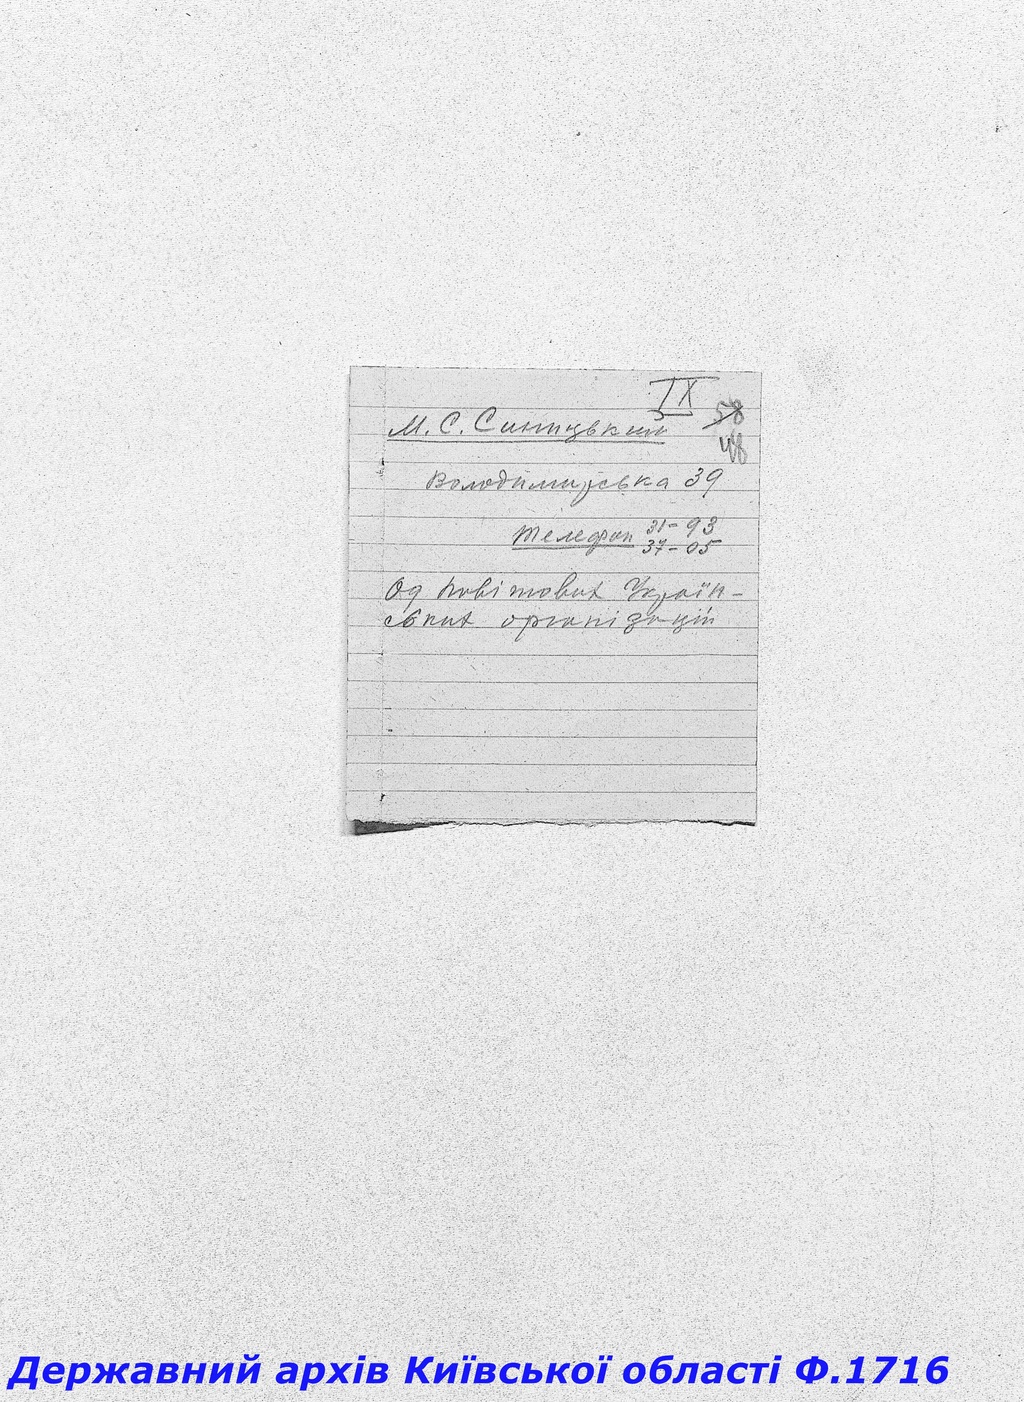 IX
58
48
М. С. Синицький
Володимирська 39
Телефон 31-93
37-05
Од повітових Україн-
ських організацій
Державний архів Київської області Ф.1716